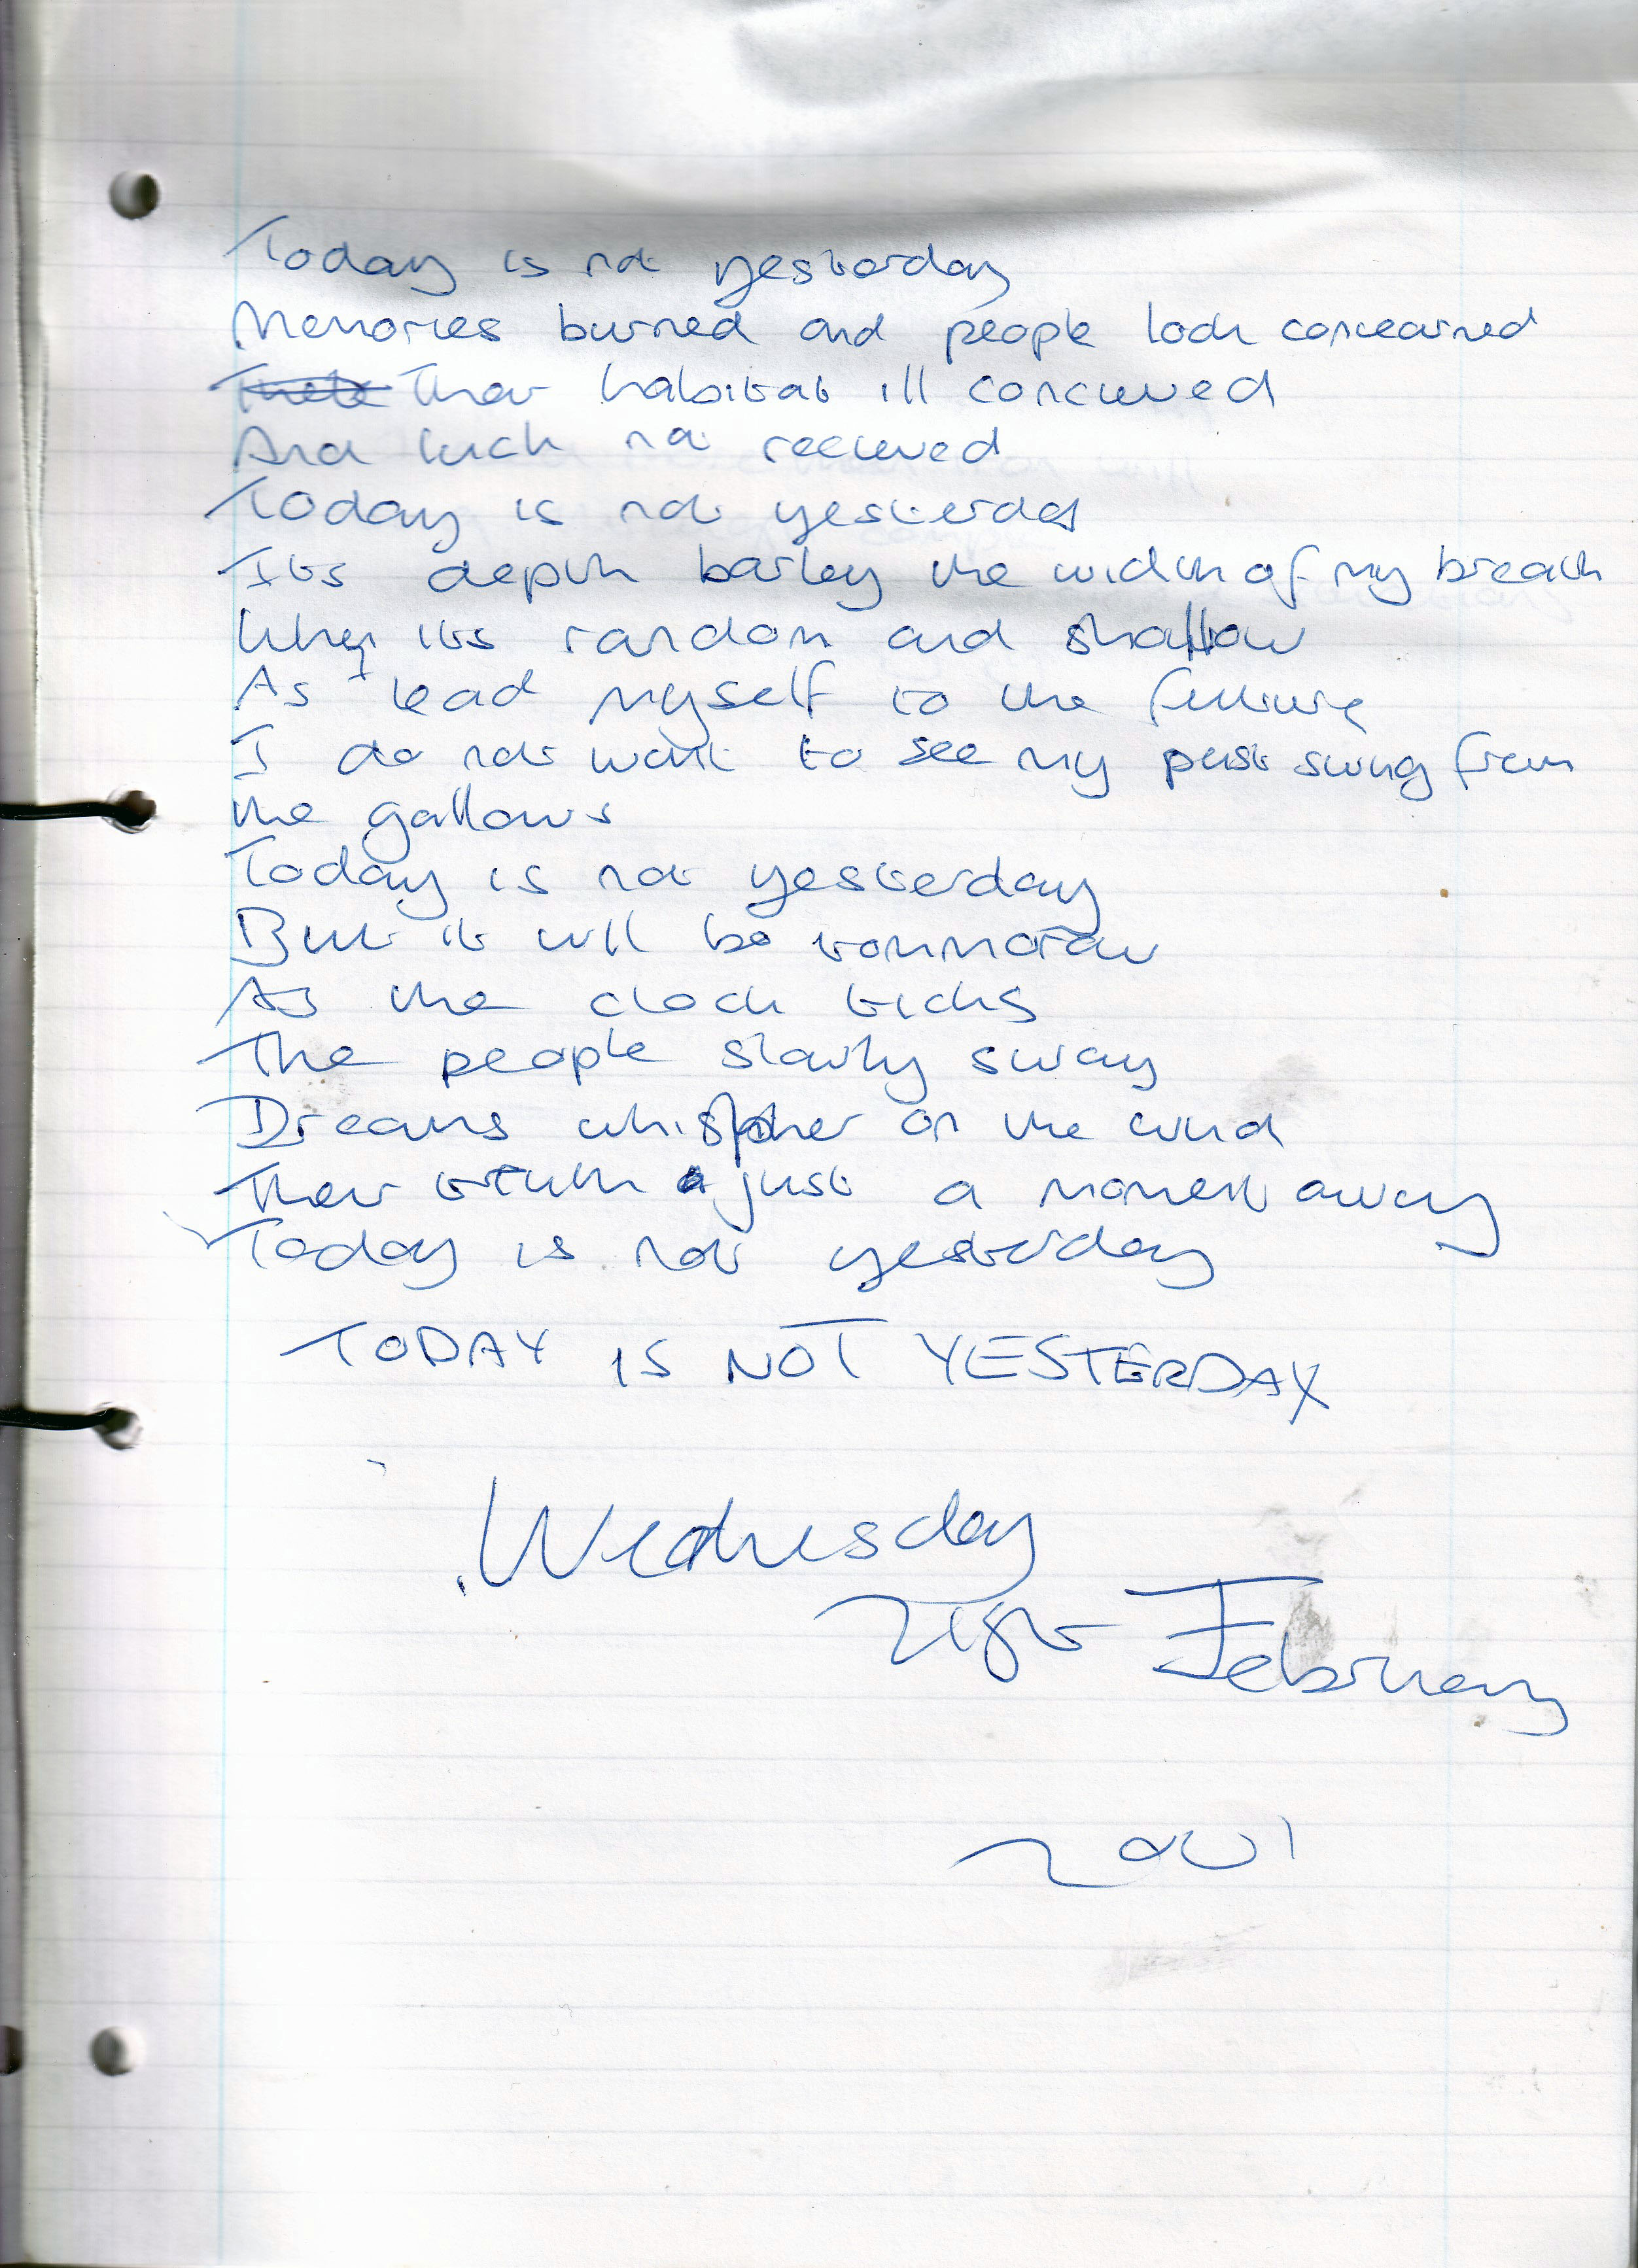 Today is not yesterday
Memories burned and people look concearned
Their habitat ill concieved
And luck not recieved
Today is not yesterday
Its depth barley the width of my breath
Why its random and shallow
As I lead myself to the future
I do not want to see my past swing from
the gallows
Today is not yesterday
But it will be tommorow
As the clock ticks
The people slowly sway
Dreams whispher on the wind
Their truth just a moment away
Today is not yesterday
TODAY IS NOT YESTERDAY
Wednesday
21st February
2001